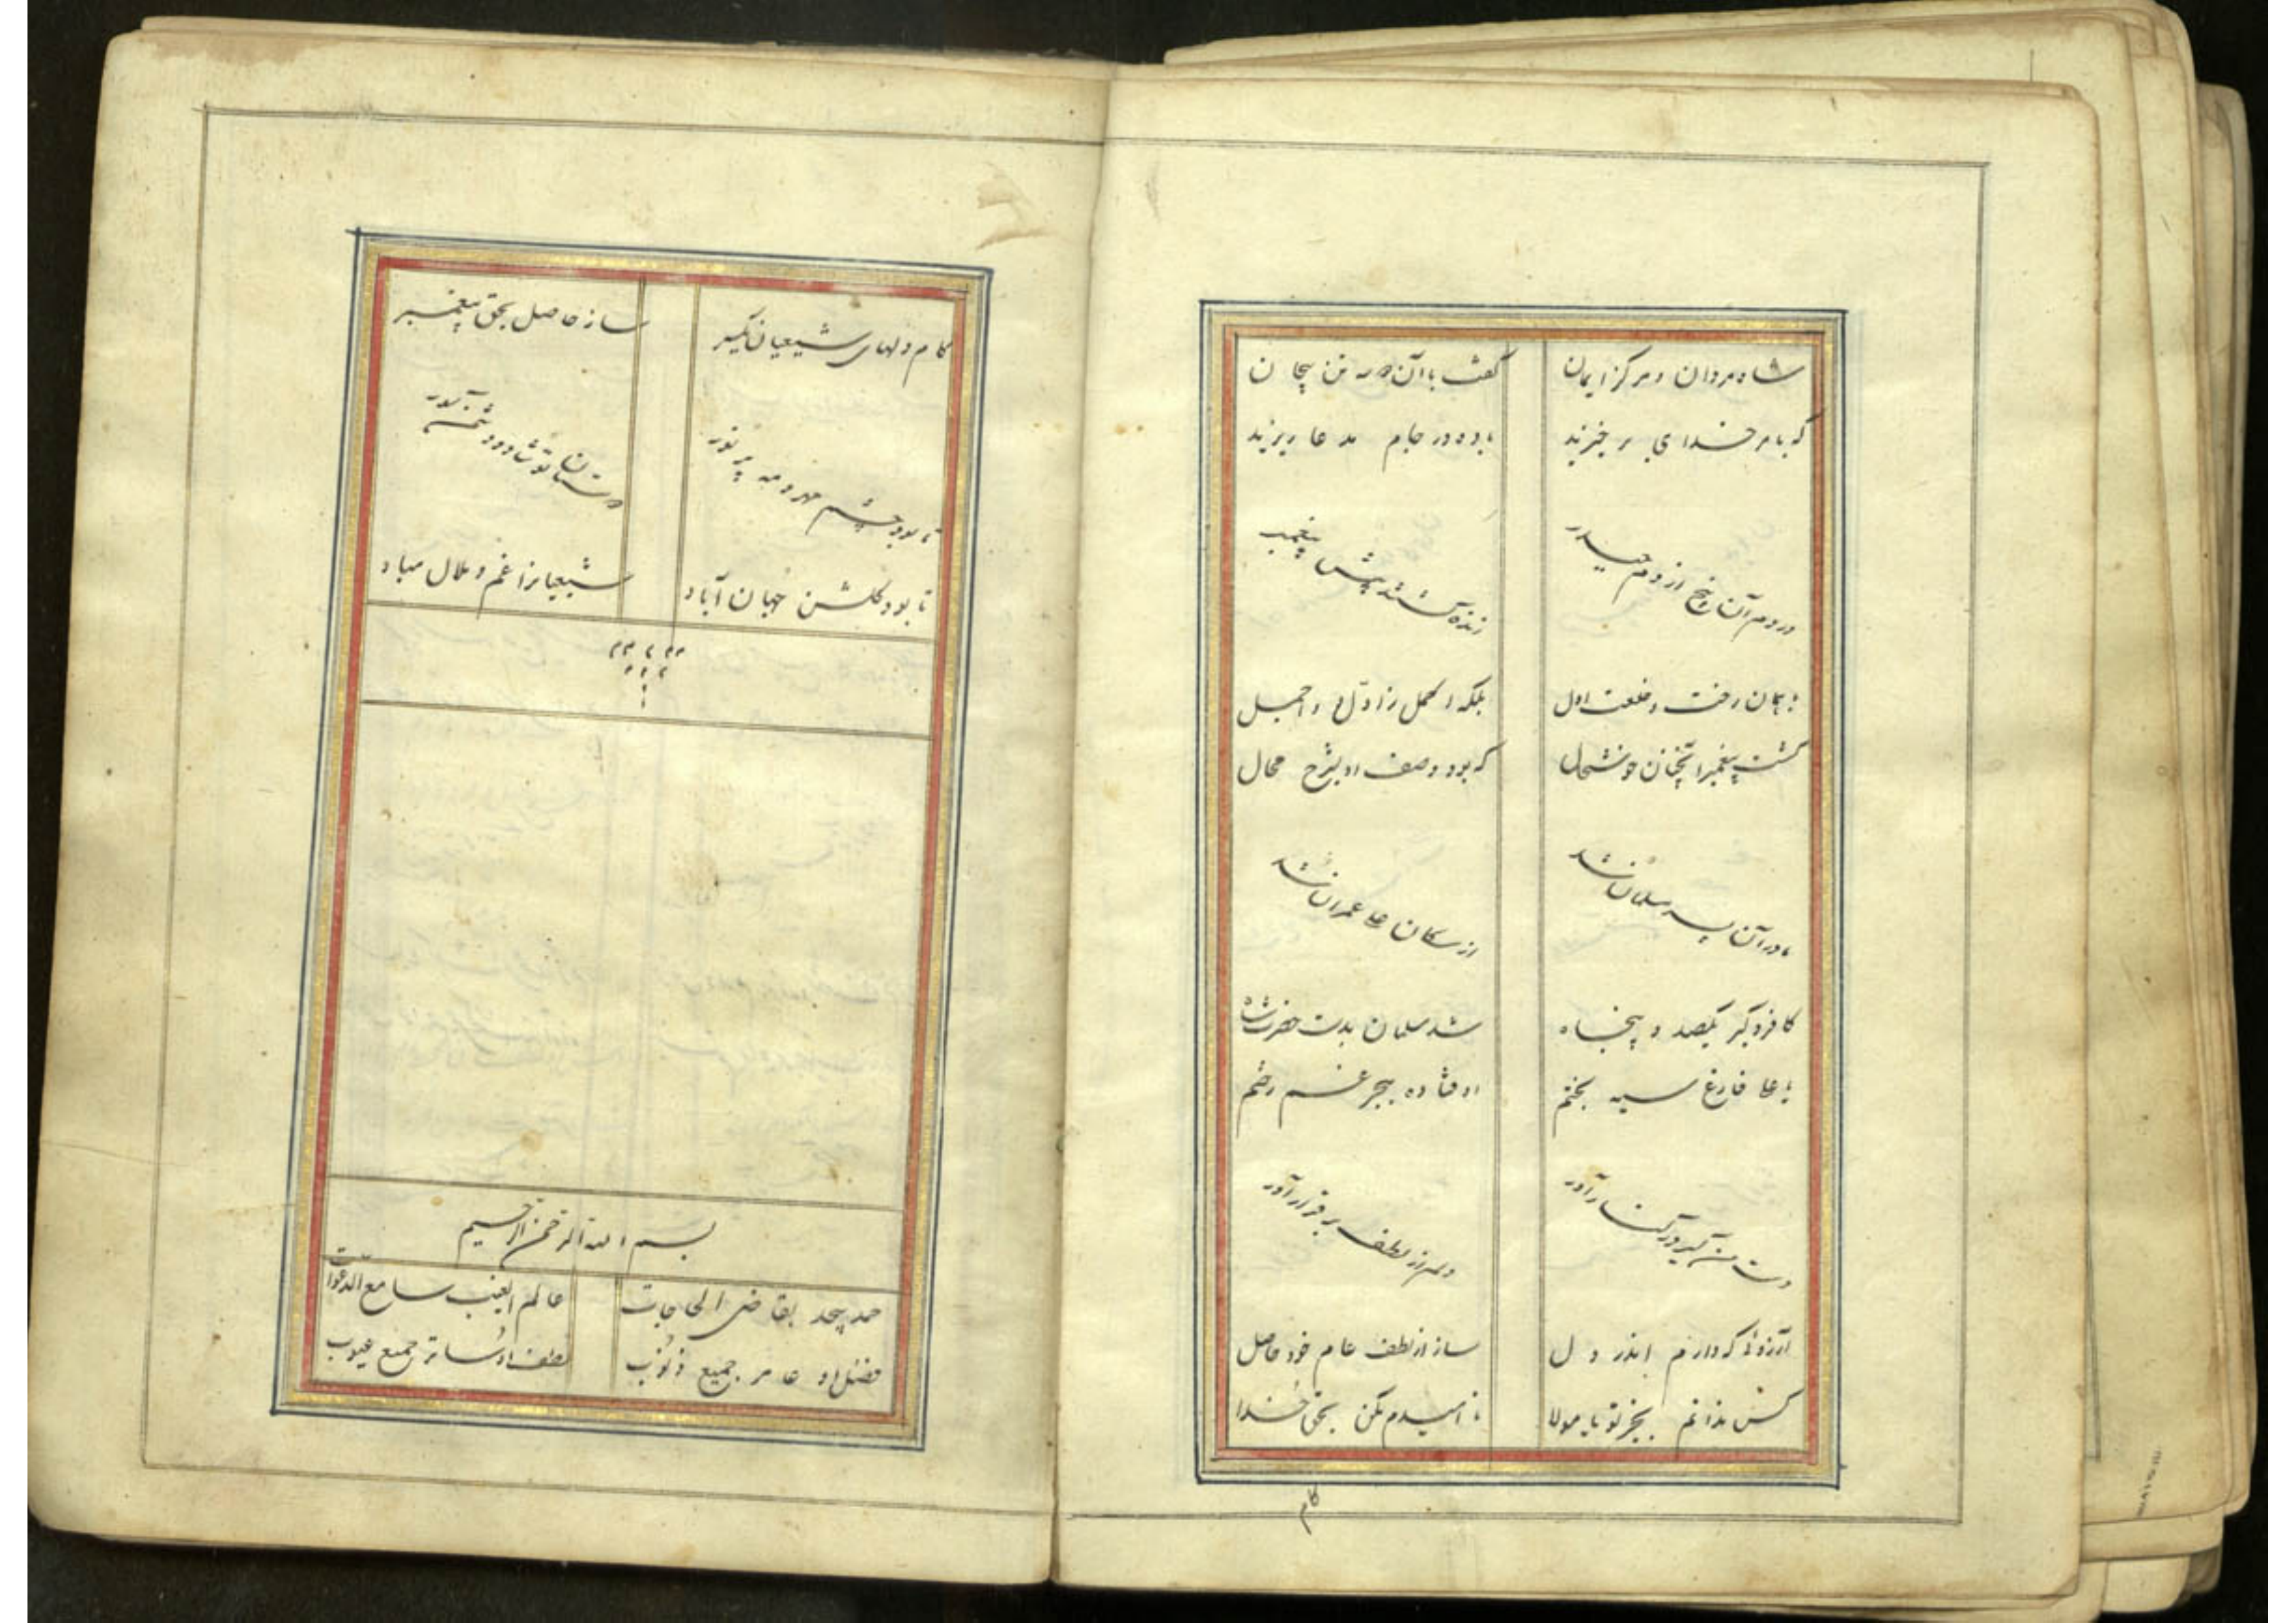 شاه مردان و مرکز ایمان گفت با آن دو تن بیجان
که بامر خدای بر خیزید باده در جام مدعا ریزید
در دم آن از دم حیدر زنده گشتند پیش پیغمبر
بهمان رخت و خلعت اول بلکه اکمل ز اول و اجمل
گشت پیغمبر آنچنان خوشحال که بود وصف او بشرح محال
مادر آن پسر مسلمان شد از سکان عمران شد
کافر و گبر یکصد و پنجاه شد مسلمان بدست حضرت شاه
یا علی فارغ سیه بختم اوفتاده ببحر غم رختم
دست من گیر و در کنار آور دلم از لطف بر قرار آور
آرزوئی که دارم اندر دل ساز از لطف عام خود حاصل
کس ندانم بجز تو یا مولا نا امیدم مکن بحق خدا
کام
کام دلهای شیعیان یکسر ساز حاصل بحق پیغمبر
تا بود چشم مهر و مه پر نور دوستان تو شاد و دشمن
تا بود گلشن جهان آباد شیعیانرا غم و ملال مباد
بسم الله الرحمن الرحیم
حمد بیحد بقاضی الحاجات عالم الغیب سامع الدعوات
فضل او غافر جمیع ذنوب لطف او ساتر جمیع عیوب